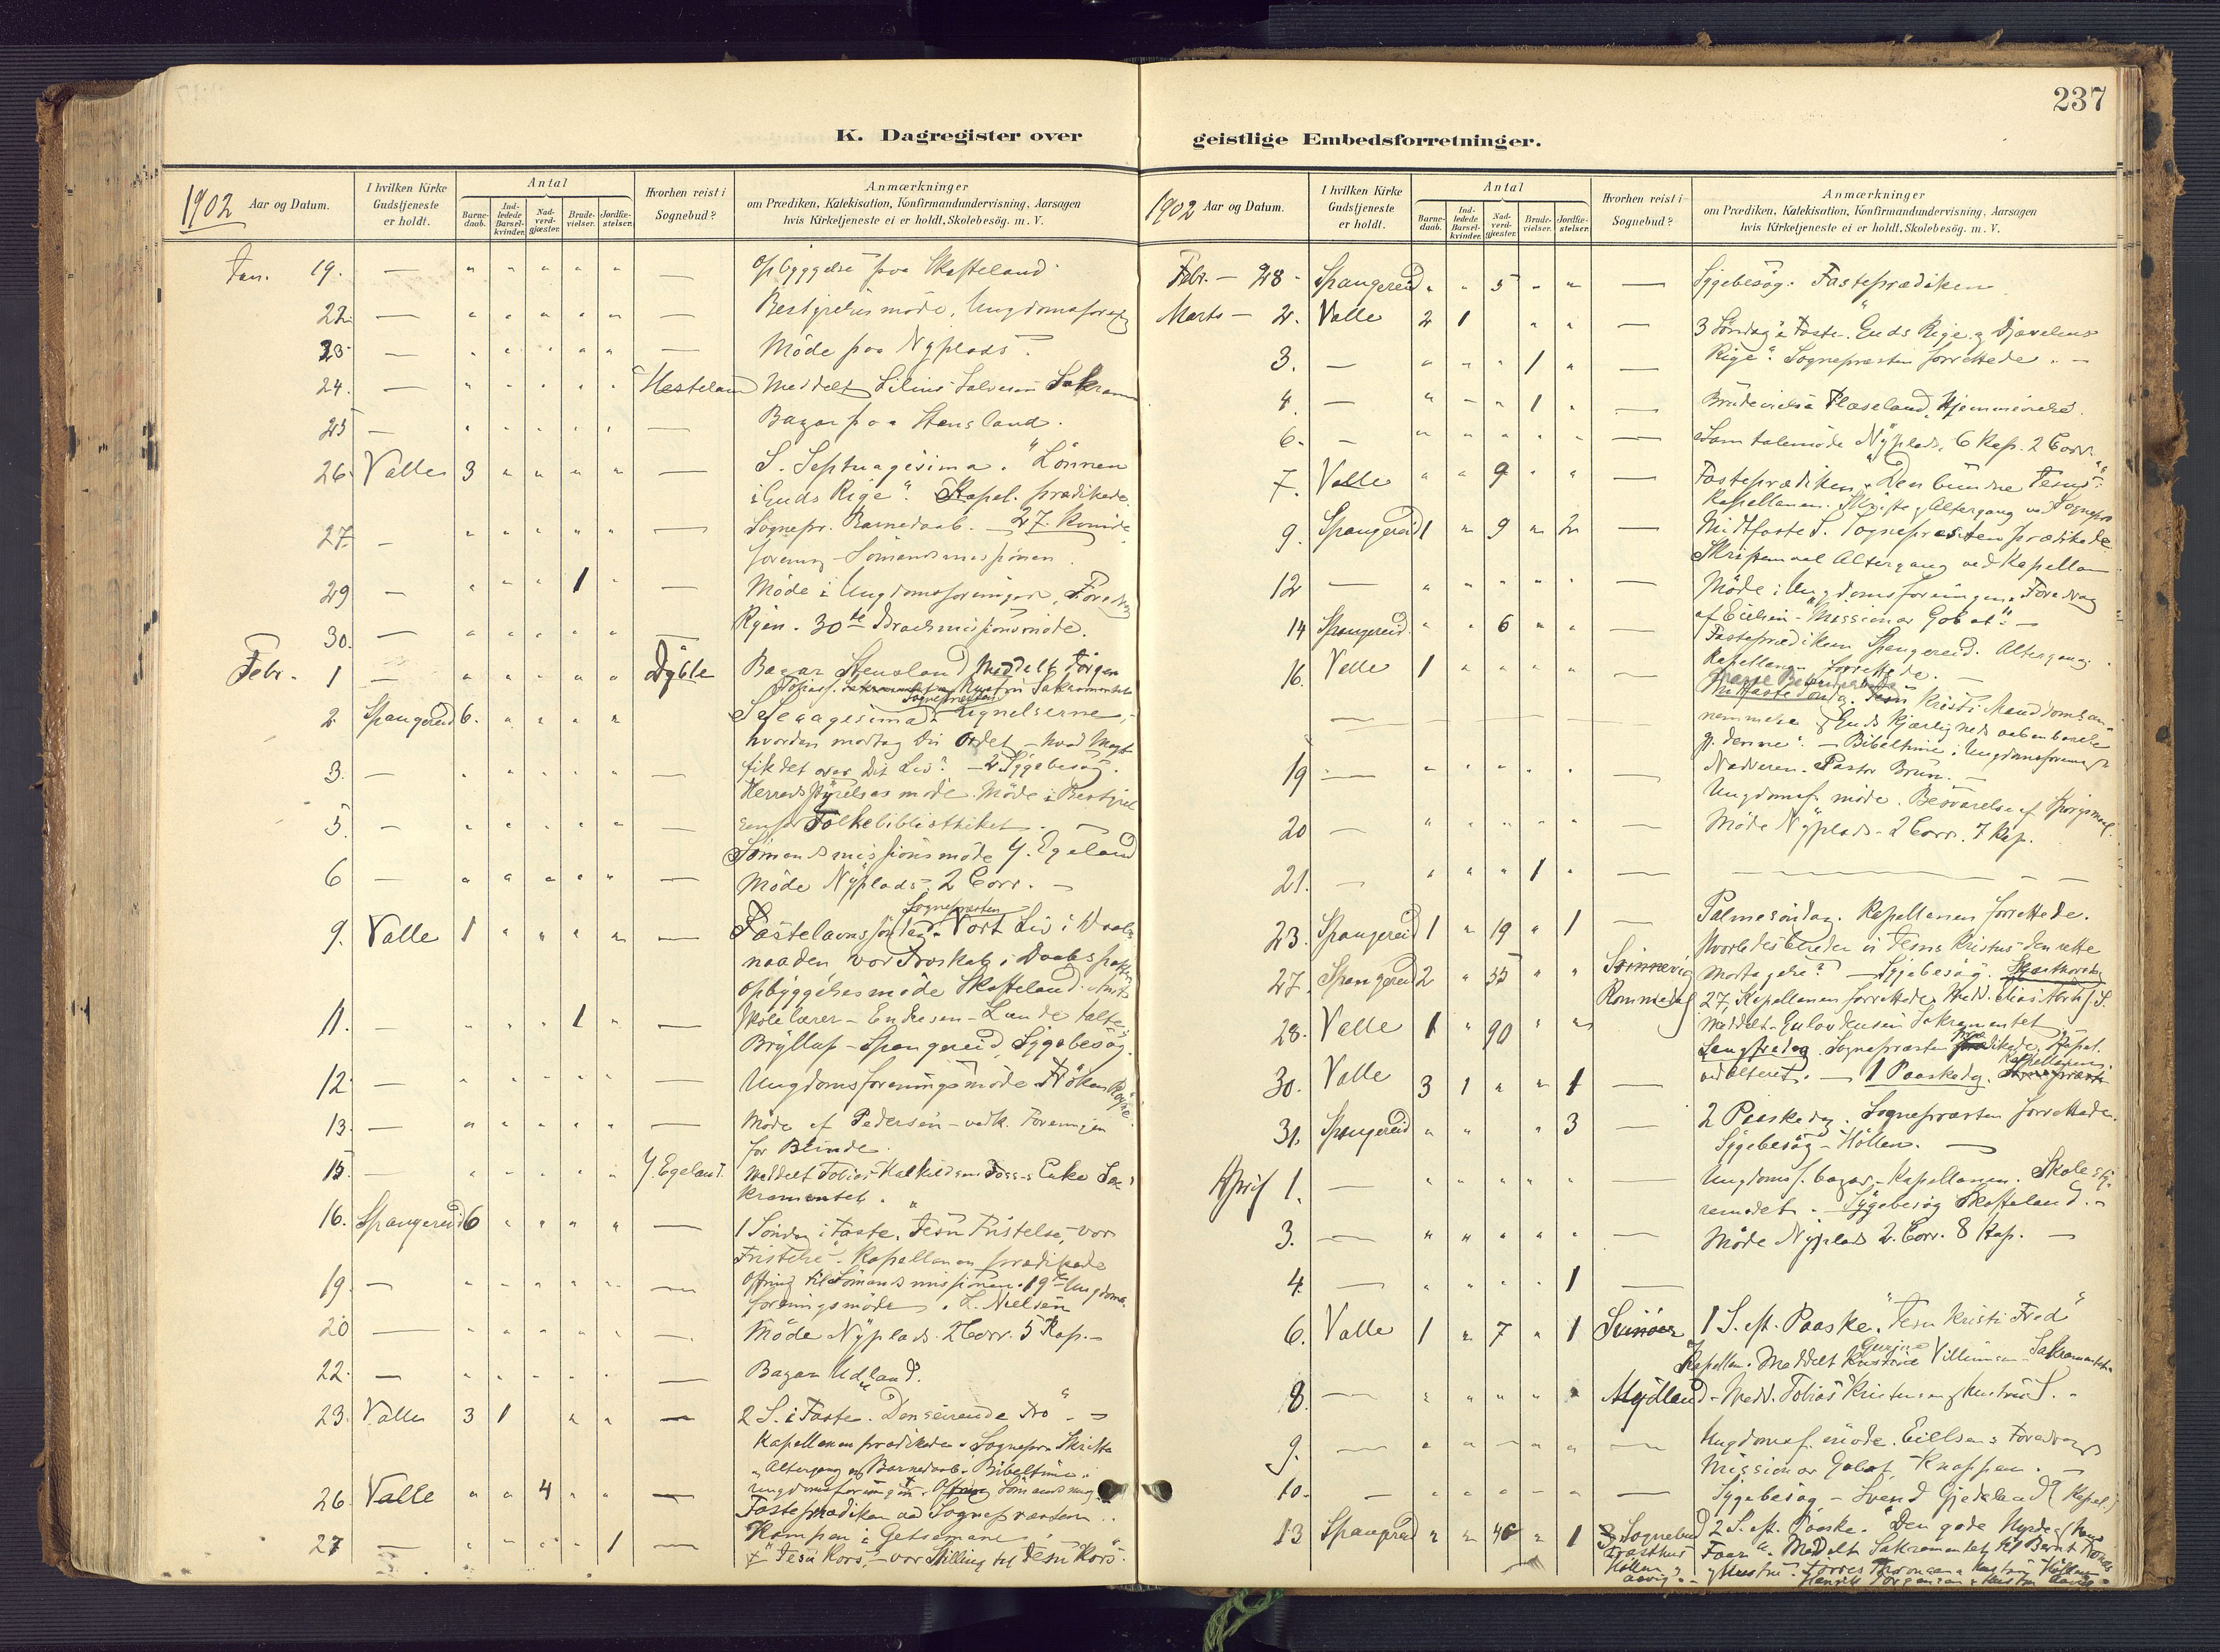 237
K. Dagregister over
geistlige Embedsforretninger.
1902 Aar og Datum.
I hvilken Kirke Gudstjeneste er holdt.
Antal
Barne-daab.
Ind-ledede Barsel-kvinder.
Nad-verd-gjæster.
Brude-vielser.
Jordfæ-stelser.
Hvorhen reist i Sognebud?
Anmærkninger
om Prædiken, Katekisation, Konfirmandundervisning, Aarsagen
hvis Kirketjeneste ei er holdt, Skolebesög. m. V.
Jan. 19. — " " " " " — Opbyggelse paa Skofteland
22. — " " " " " — Bestyrelsesmöde, Ungdomsforen
23 — " " " " — Möde paa Nyplads.
24. — " " " " " Hesteland Meddelt Salvesen Sakram
25 — " " " " " — Bazar paa Stensland.
26. Valle 3 " " " " — S. Septuagesima. "Lönnen
i Guds Rige". Kapel. prædikede.
27. — " " " " " — Sognepr. Barnedaab. — 27. Kvinde
forening Sömandsmissionen.
29 — " " " 1 " — Möde i Ungdomsforeningen, Foredrag
30. — " " " " " — 30te
Febr. 1 — " " " " " Dyble Bazar Stensland Meddelt Jörgen
Tobias. Hustru Sakramentet
Sognepræsten
2. Spangereid 6. " " " " Sexagesima. Lignelserne,
hvordan modtog Du Ordet — hvad Magt
3. — " " " " " — fik det over Dit Liv? — 2 Sygebesög.
Herredsstyrelsesmöde. Möde i Bestyrel
5. — " " " " " — sen for Folkebibliotheket. —
Sömandsmissionsmöde Y. Egeland
6 — " " " " " — Möde Nyplads. 2 Corr. —
Sognepræsten
9. Valle 1 " " " " — Fastelavnssöndag. Vort Liv i Daabs
naaden vor Troskab i Daabspagten
Opbyggelsesmöde Skofteland. Amts
11. — " " " 1 " — skolelærer — Endresen — Lunde talte.
Bryllup — Spangereid Sygebesög.
12. — " " " " " — Ungdomsforeningsmöde Fröken
13. — " " " " " — Möde af Pedersen — vedk. Foreningen
for Blinde.
15. — " " " " " Y. Egeland. Meddelt Tobias Enke Sa-
kramentet.
16. Spangereid 6 " " " " — 1 Söndag i Faste. Jesu Fristelse, vor
Fristelse". Kapellanen prædikede
19. — " " " " " — Offring til Sömandsmissionen. 19de Ungdoms-
foreningsmöde. L. Nielsen
20 — " " " " " — Möde Nyplads. 2 Corr. 5 Kap. —
22. — " " " " " — Bazar Udland.
23. Valle 3 1 " " — 2 S. i Faste. Den seirende Tro" —
Kapellanen prædikede. Sognepr. Skrifte
Altergang og Barnedaab. Bibeltime i
26. Valle " " 4 " " — Ungdomsforeningen.
Fasteprædiken ved Sognepræsten.
27 — " " " " 1 — Kampen i Getsemane
Jesu Kors, — vor Stilling til Jesu Kors.
1902 Aar og Datum.
I hvilken Kirke Gudstjeneste er holdt.
Antal
Barne-daab.
Ind-ledede Barsel-kvinder.
Nad-verd-gjæster.
Brude-vielser.
Jordfæ-stelser.
Hvorhen reist i Sognebud?
Anmærkninger
om Prædiken, Katekisation, Konfirmandundervisning, Aarsagen
hvis Kirketjeneste ei er holdt, Skolebesög. m. V.
Febr. — 28 — Spangereid " " 5 " " — Sygebesög. Fasteprædiken
Marts — 2. Valle 2 1 " " — 3 Söndag i Faste. Guds Rige og Djævelens
3. — " " " 1 " — Rige". Sognepræsten forrettede. —
4. — " " " 1 " — Brudevielse Flaseland, Hjemmevielse.
6. — " " " " " — Samtalemöde Nyplads, 6 Kap. 2 Corr.
7. Valle " " 9 " " — Fasteprædiken. "Den bundne Jesus".
Kapellanen. Skrifte og Altergang ved Sognepr
9. Spangereid 1 " 9 " 2 — Midtfaste S. Sognepræsten prædikede
Skriftemaal Altergang ved Kapellan
12 — " " " " " — Möde i Ungdomsforeningen. Foredrag
af Eielsen "Missionar Gobat". —
14 Spangereid " " 6 " " — Fasteprædiken Spangereid. Altergang.
Kapellanen forrettede. —
16. Valle 1 " " " " —
Kristi Manddomsan-
nemmelse og Guds Kjærligheds aabenbarelse
gj. denne". — Bibeltime i Ungdomsforening
19 — " " " " " — Nadveren. Pastor Brun. —
Ungdomsf. möde. Besvarelse af Spörgsmaal.
20 — " " " " " — Möde Nyplads — 2 Corr. 7 Kap.
21. — " " " 1 " —
23. Spangereid 1 " 19 " 1 — Palmesöndag. Kapellanen forrettede.
Hvorledes bereder vi Jesus Kristus den rette
27. Spangereid 2 " 55 " " Svinnevig Modtagelse? — Sygebesög. Skjærthorsdag
Rommedal 27, Kapellanen forrettede. Medd. S.
28. Valle 1 " 90 " " Meddelt Sakramentet
Langfredag. Sognepræsten prædikede. Kapel.
30. Valle 3 1 " " 1 — ved Alteret. — 1 Paaskedag. Kapellanen
31. Spangereid " " " 3 — 2 Paaskedag. Sognepræsten forrettede.
Sygebesög — Höllen. —
April 1. — " " " " " — Ungdomsf. bazar. — Kapellanen. Skolesty-
remödet. — Sygebesög Skofteland. —
3. — " " " " " — Möde Nyplads 2. Corr. 8 Kap. —
4. — " " " " 1 —
6. Valle 1 " 7 " 1 Svinöer 1 S. eft. Paaske. "Jesu Kristi Fred"
Kapellan. Meddelt Villumsen Sakramentet.
8. — " " " " " Mydland — Medd. Tobias Kristensen og Hustru S. —
9. — " " " " " — Ungdomsf. möde. Eielsens Foredrag
Missionar Gobat. Knappen. —
10. — " " " " " — Sygebesög — Svend Gjedeland (Kapel.)
13 Spangereid " " 46 " 1 3 Sognebud 2 S. eft. Paaske. "Den gode Hyrde og hans
Faar". Meddelt Sakramentet til Bernt
Höllen og Hustru.